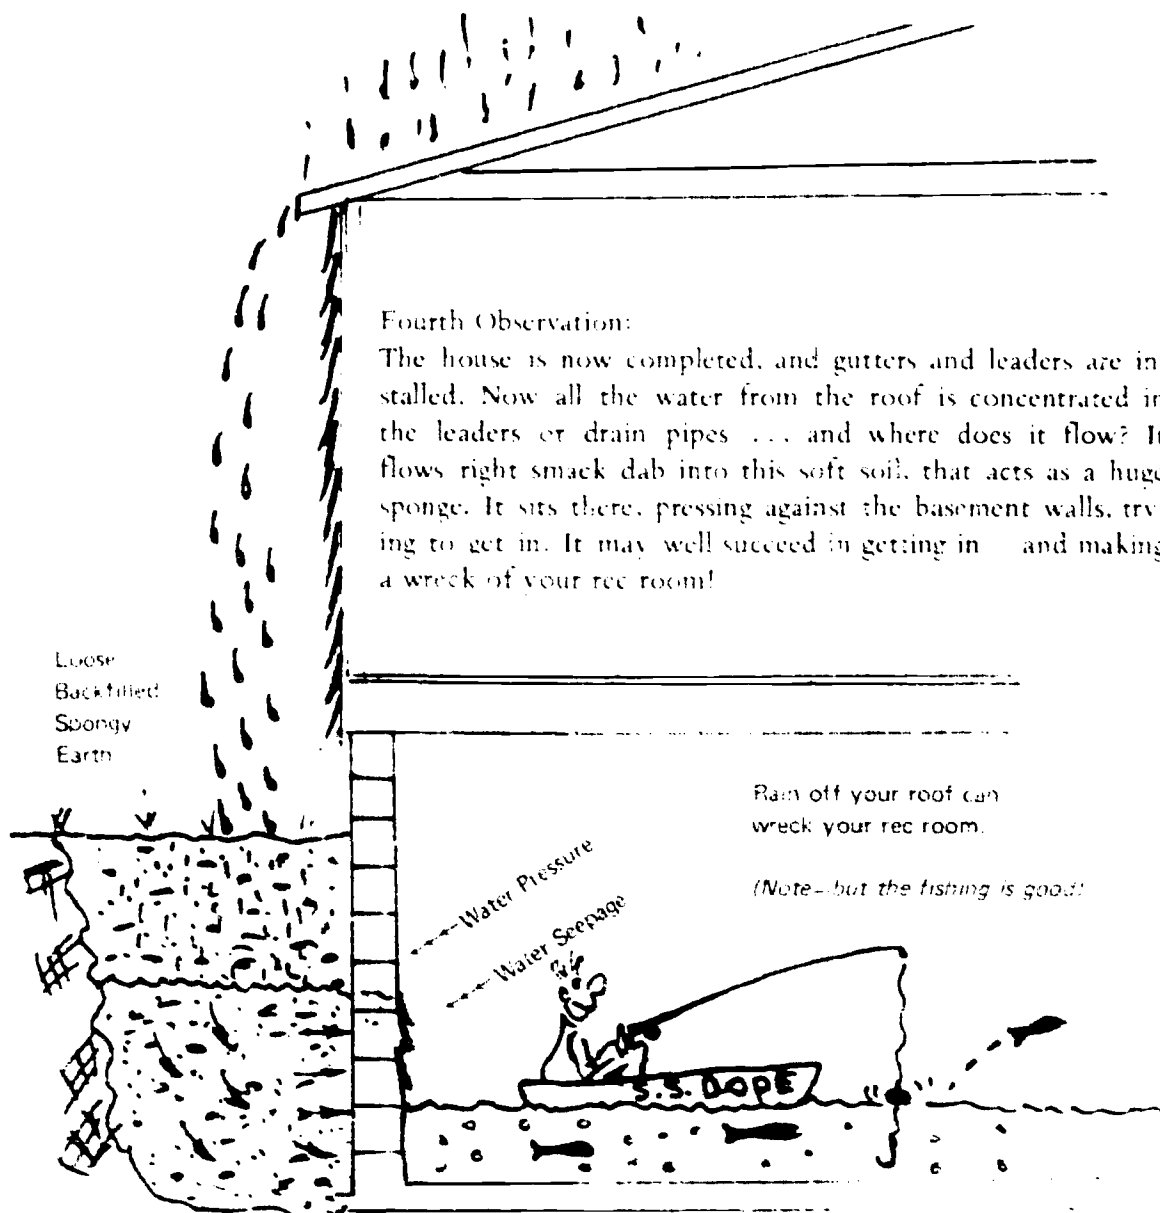 Fourth Observation:
The house is now completed, and gutters and leaders are in
stalled. Now all the water from the roof is concentrated in
the leaders or drain pipes ... and where does it flow? It
flows right smack dab into this soft soil, that acts as a huge
sponge. It sits there, pressing against the basement walls, try
ing to get in. It may well succeed in getting in and making
a wreck of your rec room!
Loose
Backfilled
Spongy
Earth
Rain off your roof can
wreck your rec room.
(Note—but the fishing is good)
Water Pressure
Water Seepage
S.S. DOPE